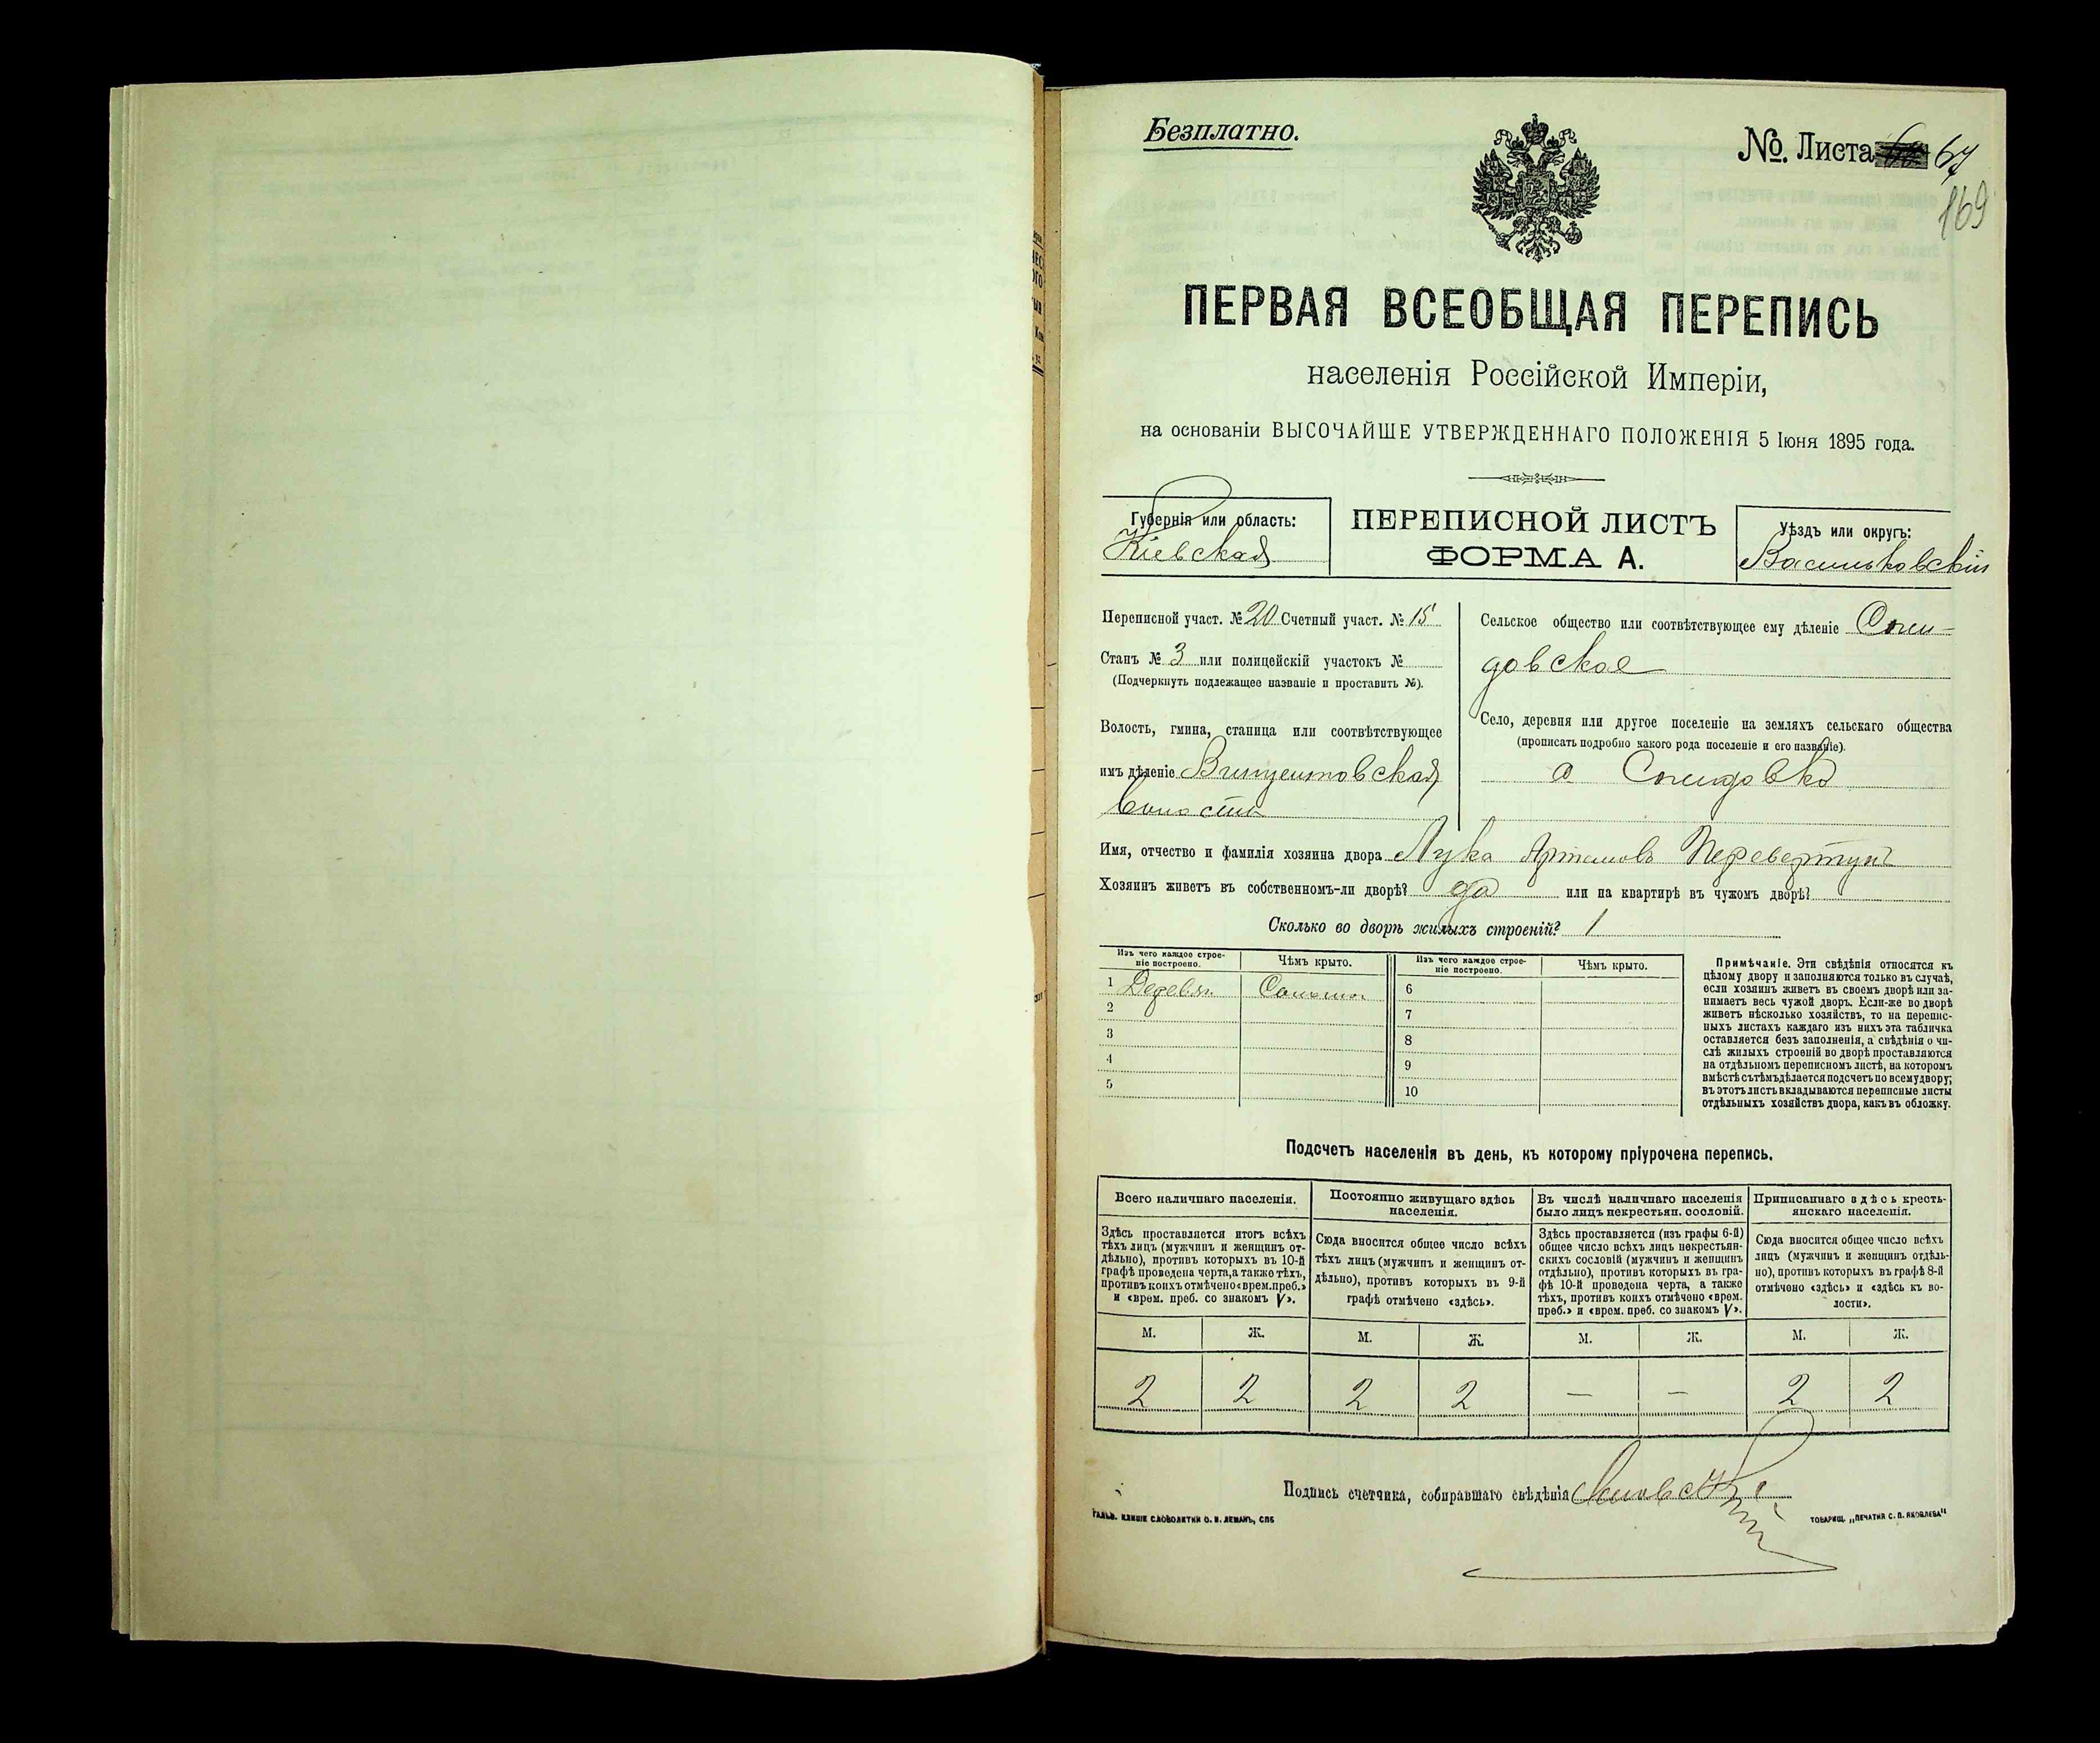 Безплатно.
№. Листа 67
169
ПЕРВАЯ ВСЕОБЩАЯ ПЕРЕПИСЬ
населенія Россійской Имперіи,
на основаніи ВЫСОЧАЙШЕ УТВЕРЖДЕННАГО ПОЛОЖЕНІЯ 5 Іюня 1895 года.
Губернія или область:
Кіевская
ПЕРЕПИСНОЙ ЛИСТЪ
ФОРМА А.
Уѣздъ или округъ:
Васильковскій
Переписной участ. № 20 Счетный участ. № 15
Станъ № 3 или полицейскій участокъ №
(Подчеркнуть подлежащее названіе и проставить №).
Волость, гмина, станица или соотвѣтствующее
имъ дѣленіе Винцентовская
волость
Сельское общество или соотвѣтствующее ему дѣленіе
довское
Село, деревня или другое поселеніе на земляхъ сельскаго общества
(прописать подробно какого рода поселеніе и его названіе).
Имя, отчество и фамилія хозяина двора Лука Артемовъ Перевертунъ
Хозяинъ живетъ въ собственномъ-ли дворѣ? да или на квартирѣ въ чужомъ дворѣ?
Сколько во дворѣ жилыхъ строеній? 1
Изъ чего каждое строе-
ніе построено.
Чѣмъ крыто.
Изъ чего каждое строе-
ніе построено.
Чѣмъ крыто.
1 Деревян. Солом. 6
2 7
3 8
4 9
5 10
Примѣчаніе. Эти свѣдѣнія относятся къ
цѣлому двору и заполняются только въ случаѣ,
если хозяинъ живетъ въ своемъ дворѣ или за-
нимаетъ весь чужой дворъ. Если-же во дворѣ
живетъ нѣсколько хозяйствъ, то на перепис-
ныхъ листахъ каждаго изъ нихъ эта табличка
оставляется безъ заполненія, а свѣдѣнія о чи-
слѣ жилыхъ строеній во дворѣ проставляются
на отдѣльномъ переписномъ листѣ, на которомъ
вмѣстѣ съ тѣмъ дѣлается подсчетъ по всему двору;
въ этотъ листъ вкладываются переписные листы
отдѣльныхъ хозяйствъ двора, какъ въ обложку.
Подсчетъ населенія въ день, къ которому пріурочена перепись.
Всего наличнаго населенія.
Здѣсь проставляется итогъ всѣхъ
тѣхъ лицъ (мужчинъ и женщинъ от-
дѣльно), противъ которыхъ въ 10-й
графѣ проведена черта, а также тѣхъ,
противъ коихъ отмѣчено «врем. преб.»
и «врем. преб. со знакомъ V».
Постоянно живущаго здѣсь
населенія.
Сюда вносится общее число всѣхъ
тѣхъ лицъ (мужчинъ и женщинъ от-
дѣльно), противъ которыхъ въ 9-й
графѣ отмѣчено «здѣсь».
Въ числѣ наличнаго населенія
было лицъ некрестьян. сословій.
Здѣсь проставляется (изъ графы 6-й)
общее число всѣхъ лицъ некрестьян-
скихъ сословій (мужчинъ и женщинъ
отдѣльно), противъ которыхъ въ гра-
фѣ 10-й проведена черта, а также
тѣхъ, противъ коихъ отмѣчено «врем.
преб.» и «врем. преб. со знакомъ V».
Приписаннаго здѣсь кресть-
янскаго населенія.
Сюда вносится общее число всѣхъ
лицъ (мужчинъ и женщинъ отдѣль-
но), противъ которыхъ въ графѣ 8-й
отмѣчено «здѣсь» и «здѣсь къ во-
лости».
М. Ж. М. Ж. М. Ж. М. Ж.
2 2 2 2 — — 2 2
Подпись счетчика, собиравшаго свѣдѣнія
ГАЛЬВ. КЛИШЕ СЛОВОЛИТНИ О. И. ЛЕМАНЪ, СПБ
ТОВАРИЩ. „ПЕЧАТНЯ С. П. ЯКОВЛЕВА"